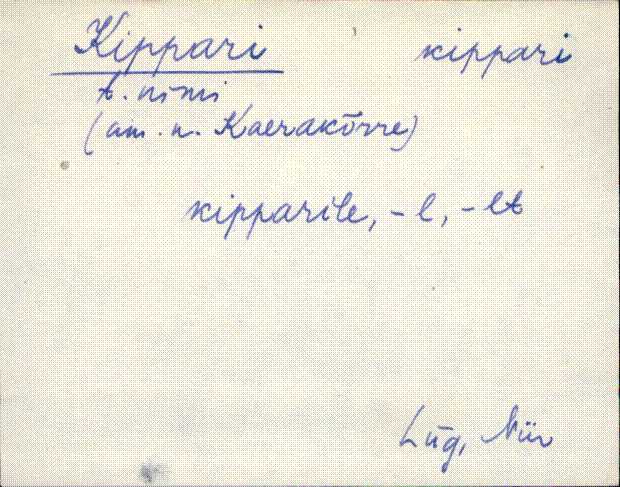 Kippari kippari
t. nimi
(am. n. Kaerakõrre)
kipparile, -l, -lt
Lüg, Niiv